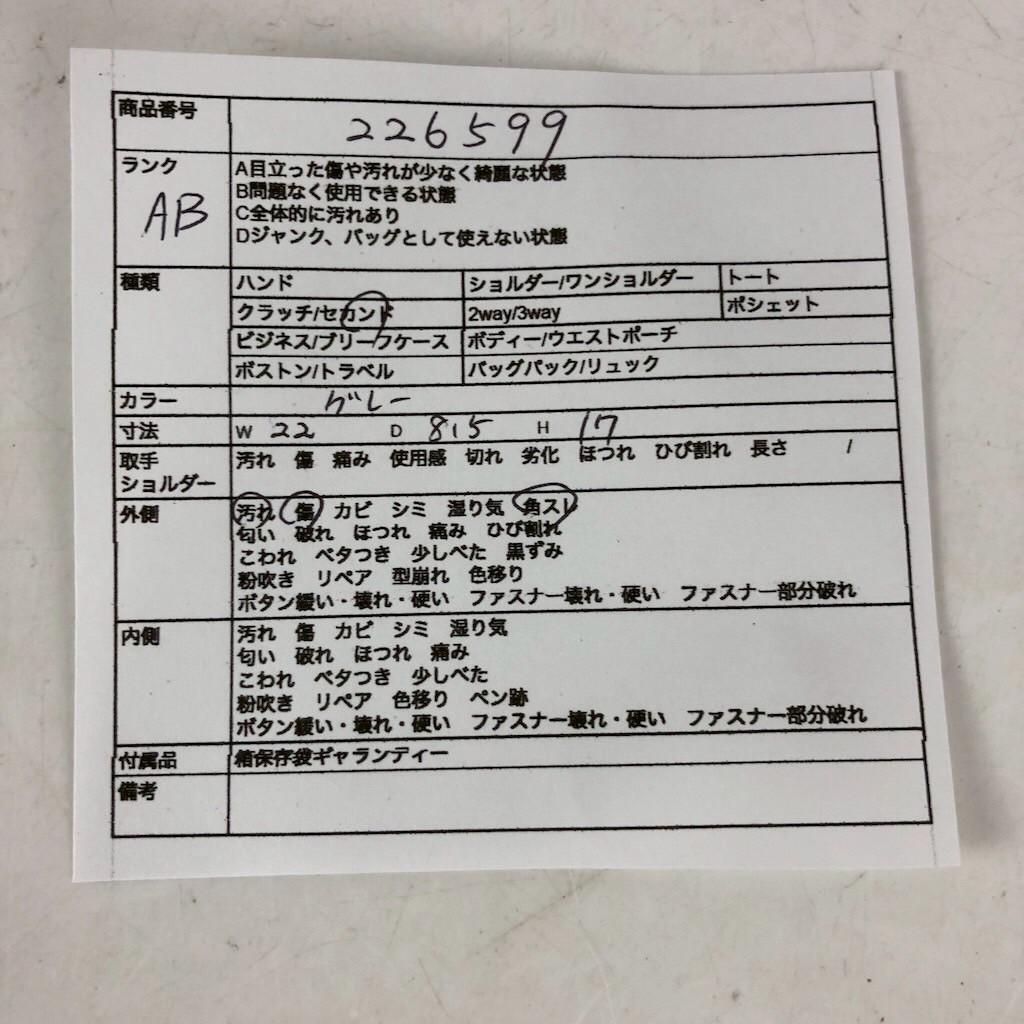 商品番号 226599
ランク AB
A目立った傷や汚れが少なく綺麗な状態
B問題なく使用できる状態
C全体的に汚れあり
Dジャンク、バッグとして使えない状態
種類 ハンド ショルダー/ワンショルダー トート
クラッチ/セカンド 2way/3way ポシェット
ビジネス/ブリーフケース ボディー/ウエストポーチ
ボストン/トラベル バッグパック/リュック
カラー グレー
寸法 W 22 D 8.5 H 17
取手 汚れ 傷 痛み 使用感 切れ 劣化 ほつれ ひび割れ 長さ /
ショルダー
外側 汚れ 傷 カビ シミ 湿り気 角スレ
匂い 破れ ほつれ 痛み ひび割れ
こわれ ベタつき 少しべた 黒ずみ
粉吹き リペア 型崩れ 色移り
ボタン緩い・壊れ・硬い ファスナー壊れ・硬い ファスナー部分破れ
内側 汚れ 傷 カビ シミ 湿り気
匂い 破れ ほつれ 痛み
こわれ ベタつき 少しべた
粉吹き リペア 色移り ペン跡
ボタン緩い・壊れ・硬い ファスナー壊れ・硬い ファスナー部分破れ
付属品 箱保存袋ギャランティー
備考